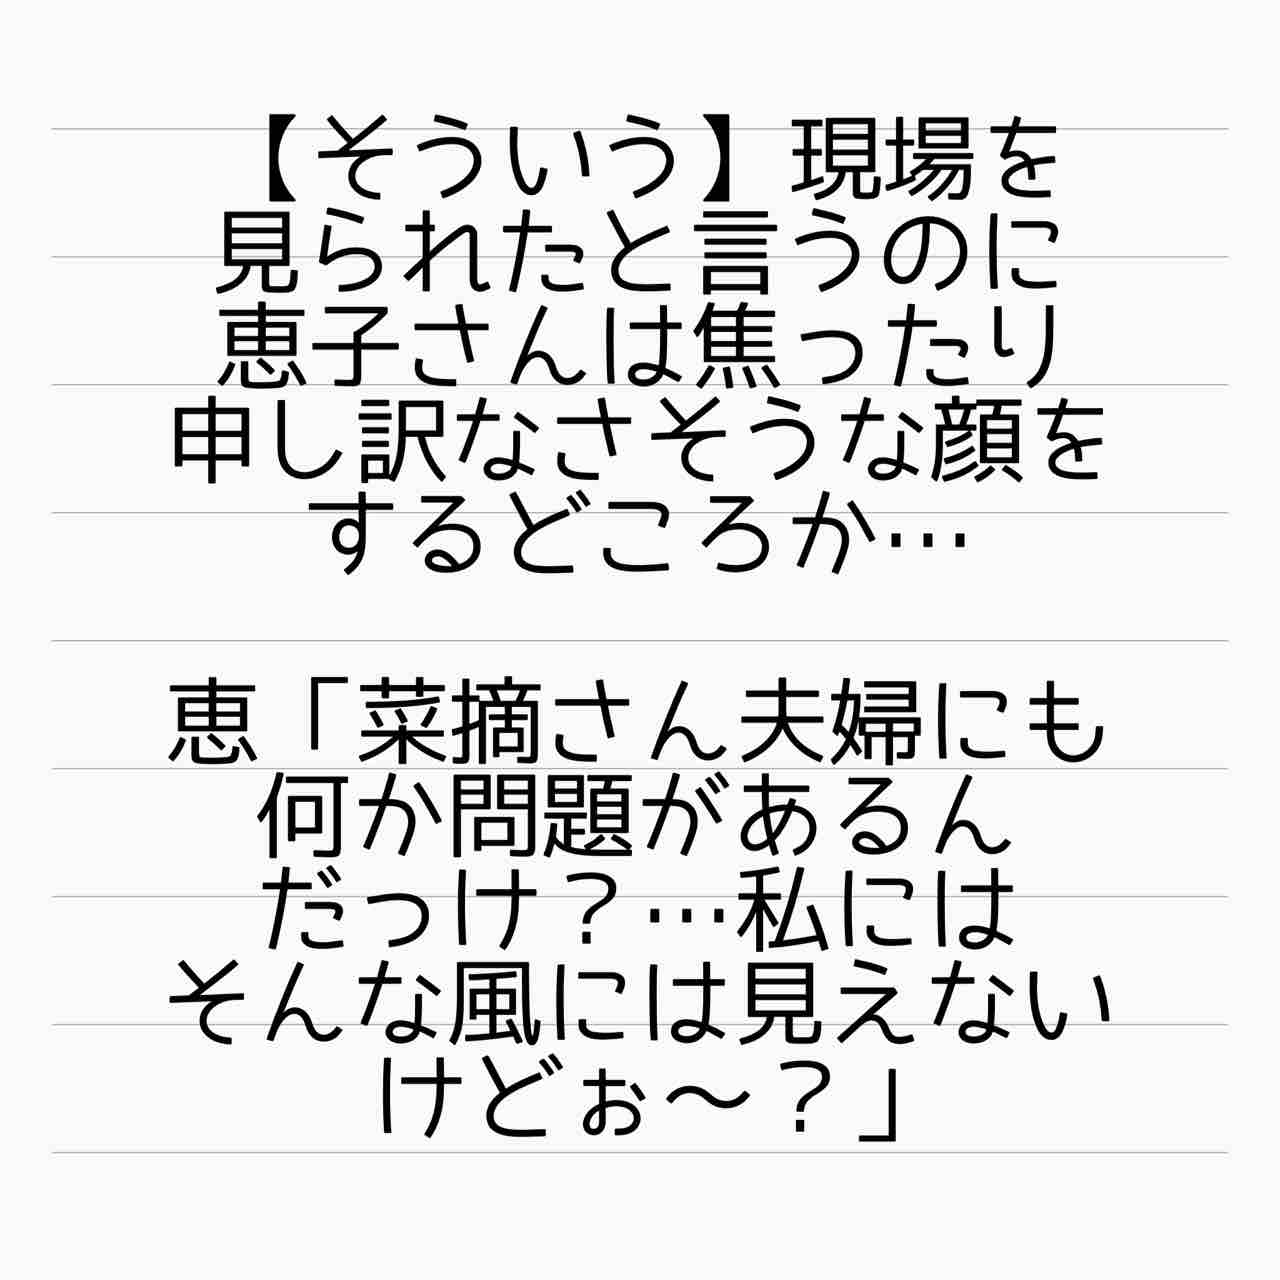 【そういう】現場を
見られたと言うのに
恵子さんは焦ったり
申し訳なさそうな顔を
するどころか…
恵「菜摘さん夫婦にも
何か問題があるん
だっけ？…私には
そんな風には見えない
けどぉ〜？」